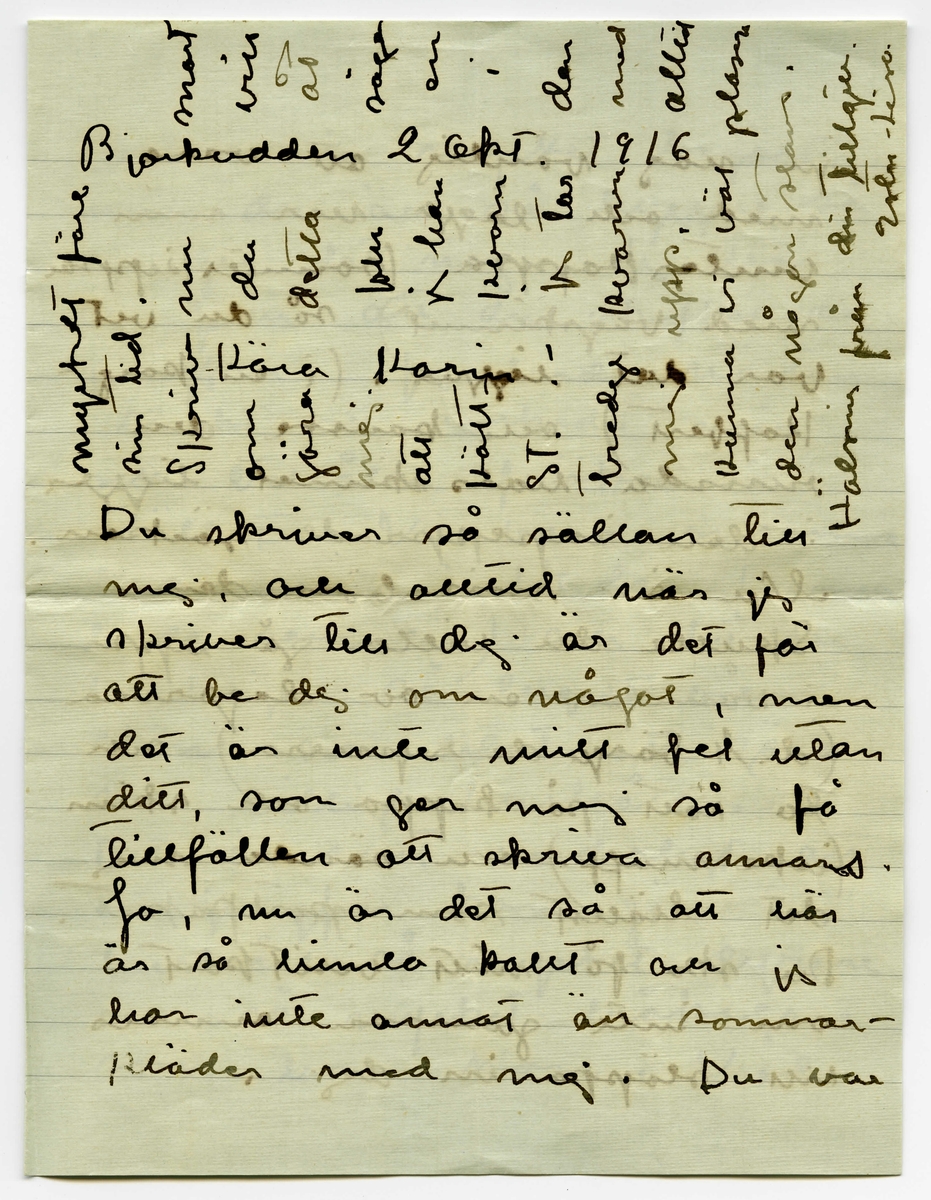 Björkudden 2 Okt. 1916
Kära Karin!
Du skriver så sällan till
mej, och alltid när jag
skriver till dej är det för
att be dej om något, men
det är inte mitt fel utan
ditt, som ger mej så få
tillfällen att skriva annars.
Jo, nu är det så att här
är så himla kallt och jag
har inte annat än sommar-
kläder med mej. Du var
mycket före
sin tid.
Skriv nu snart
om du vill
göra detta åt
mej. John säger
att han en
i
ST. Jag tar den
med
mig upp. alltid
Kunna vi väl
den någon stans.
Hälsning från din tillgivna